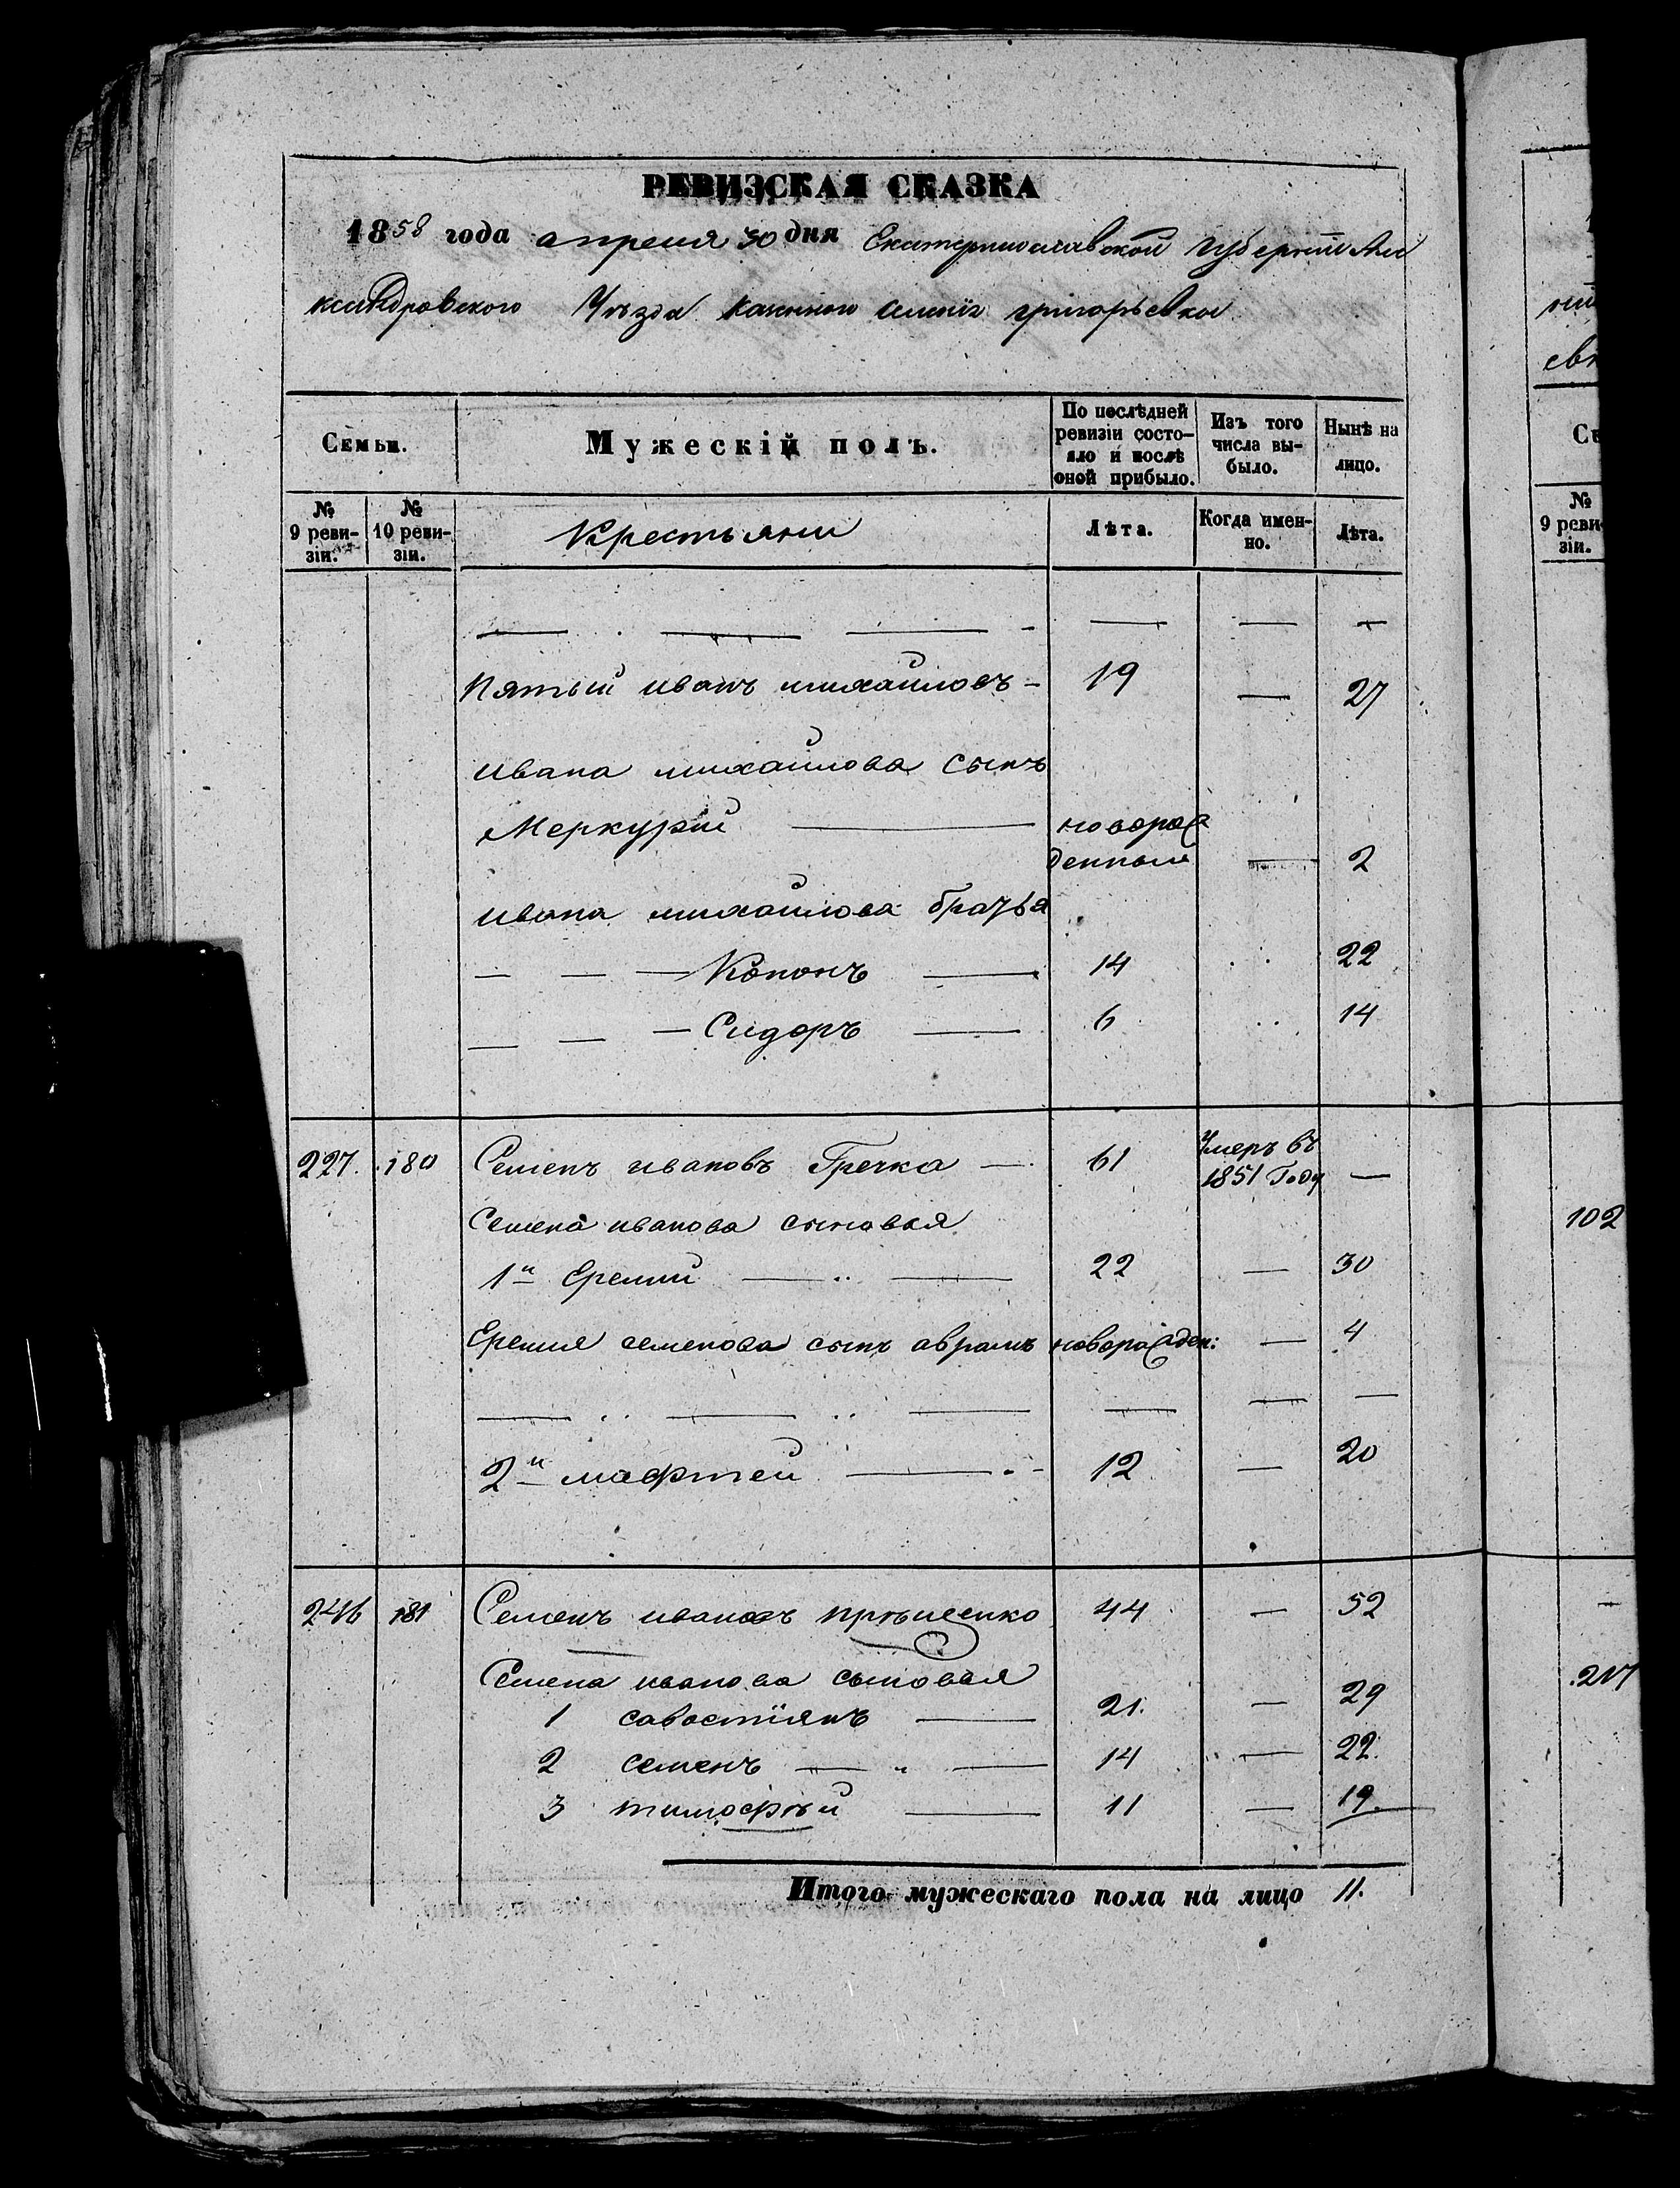 РЕВИЗСКАЯ СКАЗКА
1858 года апреля 30 дня Екатеринославской губернии Але
ксандровского Уѣзда казенного селенія григорьевки
Семьи.
Мужескій полъ.
По послѣдней ревизіи состо-яло и послѣ оной прибыло.
Изъ того числа вы-было.
Нынѣ на лицо.
№ 9 реви-зіи.
№ 10 реви-зіи.
Крестьяни
Лѣта.
Когда имен-но.
Лѣта.
Пятый иванъ михайловъ 19 — 27
ивана михайлова сынъ
Меркурій новорож
денный — 2
ивана михайлова братья
Кононъ 14 22
Сидоръ 6 14
227. 180 Семенъ ивановъ Гречка — 61 Умеръ въ 1851 Году —
Семена иванова сыновья
1й Еремий 22 — 30
Еремия семенова сынъ аврамъ новорожден: — 4
2й мафтей 12 — 20
246 181 Семенъ ивановъ 44 — 52
Семена иванова сыновья
1 савостіянъ 21. — 29
2 семенъ 14 — 22.
3 тимофѣй 11 — 19.
Итого мужескаго пола на лицо 11.
№ 9 реви-зіи.
102
217